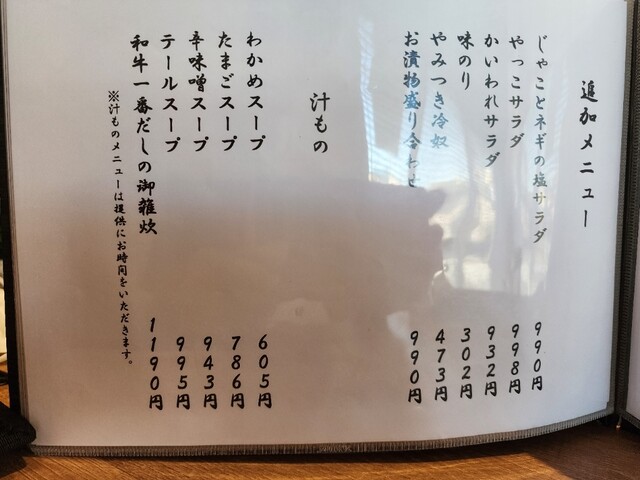 追加メニュー
じゃことネギの塩サラダ 990円
やっこサラダ 998円
かいわれサラダ 932円
味のり 302円
やみつき冷奴 473円
お漬物盛り合わせ 990円
汁もの
わかめスープ 605円
たまごスープ 786円
辛味噌スープ 943円
テールスープ 995円
和牛一番だしの御雑炊 1190円
※汁ものメニューは提供にお時間をいただきます。